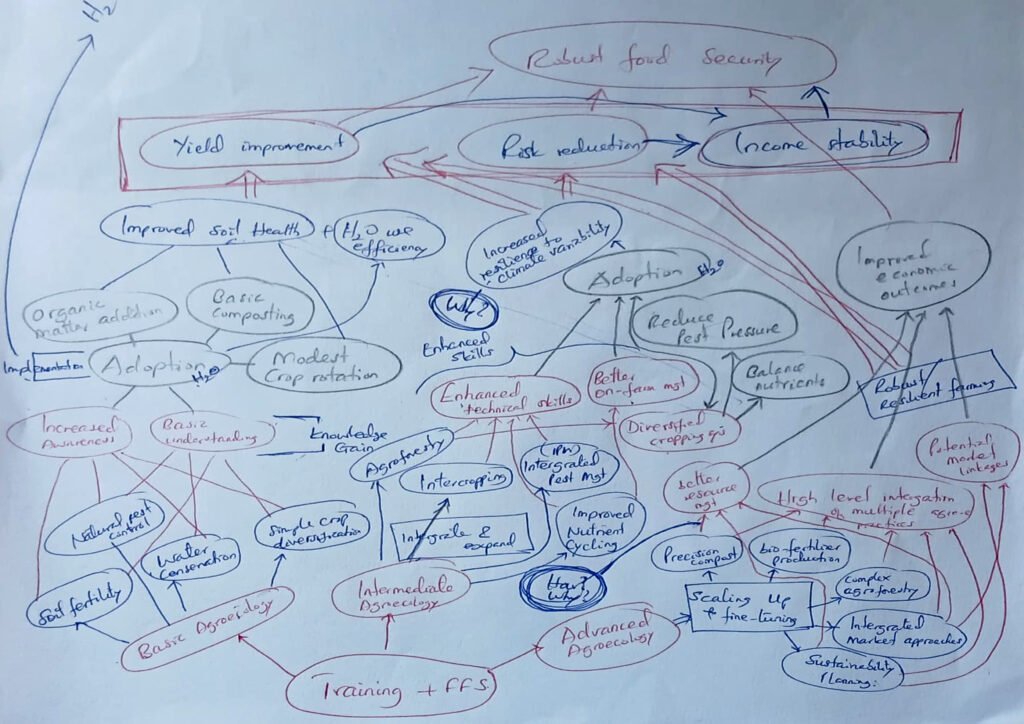 H2
Robust food security
Yield improvement
Risk reduction
Income stability
Improved Soil Health
+
H2O use
efficiency
Increased
resilience to
climate variability
Adoption
H2O
Improved
economic
outcomes
Organic
matter addition
Basic
Composting
Why?
Reduce
Pest Pressure
Enhanced
Skills
Implementation
Adoption
H2O
Modest
Crop rotation
Enhanced
technical skills
Better
on-farm mgt
Balance
nutrients
Robust
Resilient farming
Increased
Awareness
Basic
understanding
Knowledge
Gain
Diversified
cropping
Agroforestry
Intercropping
(IPM)
Intergrated
Pest Mgt
Better
resource
mgt
High level intergation
of multiple
practices
Potential
market
linkages
Natural pest
control
Simple crop
diversification
Water
Conservation
Integrate &
expand
Improved
Nutrient
Cycling
Precision
compost
bio-fertilizer
production
Soil fertility
Intermediate
Agroecology
How?
Why?
Scaling Up
& fine-tuning
Complex
agroforestry
Basic Agroecology
Advanced
Agroecology
Intergrated
market approaches
Sustainability
Planning:
Training + FFS